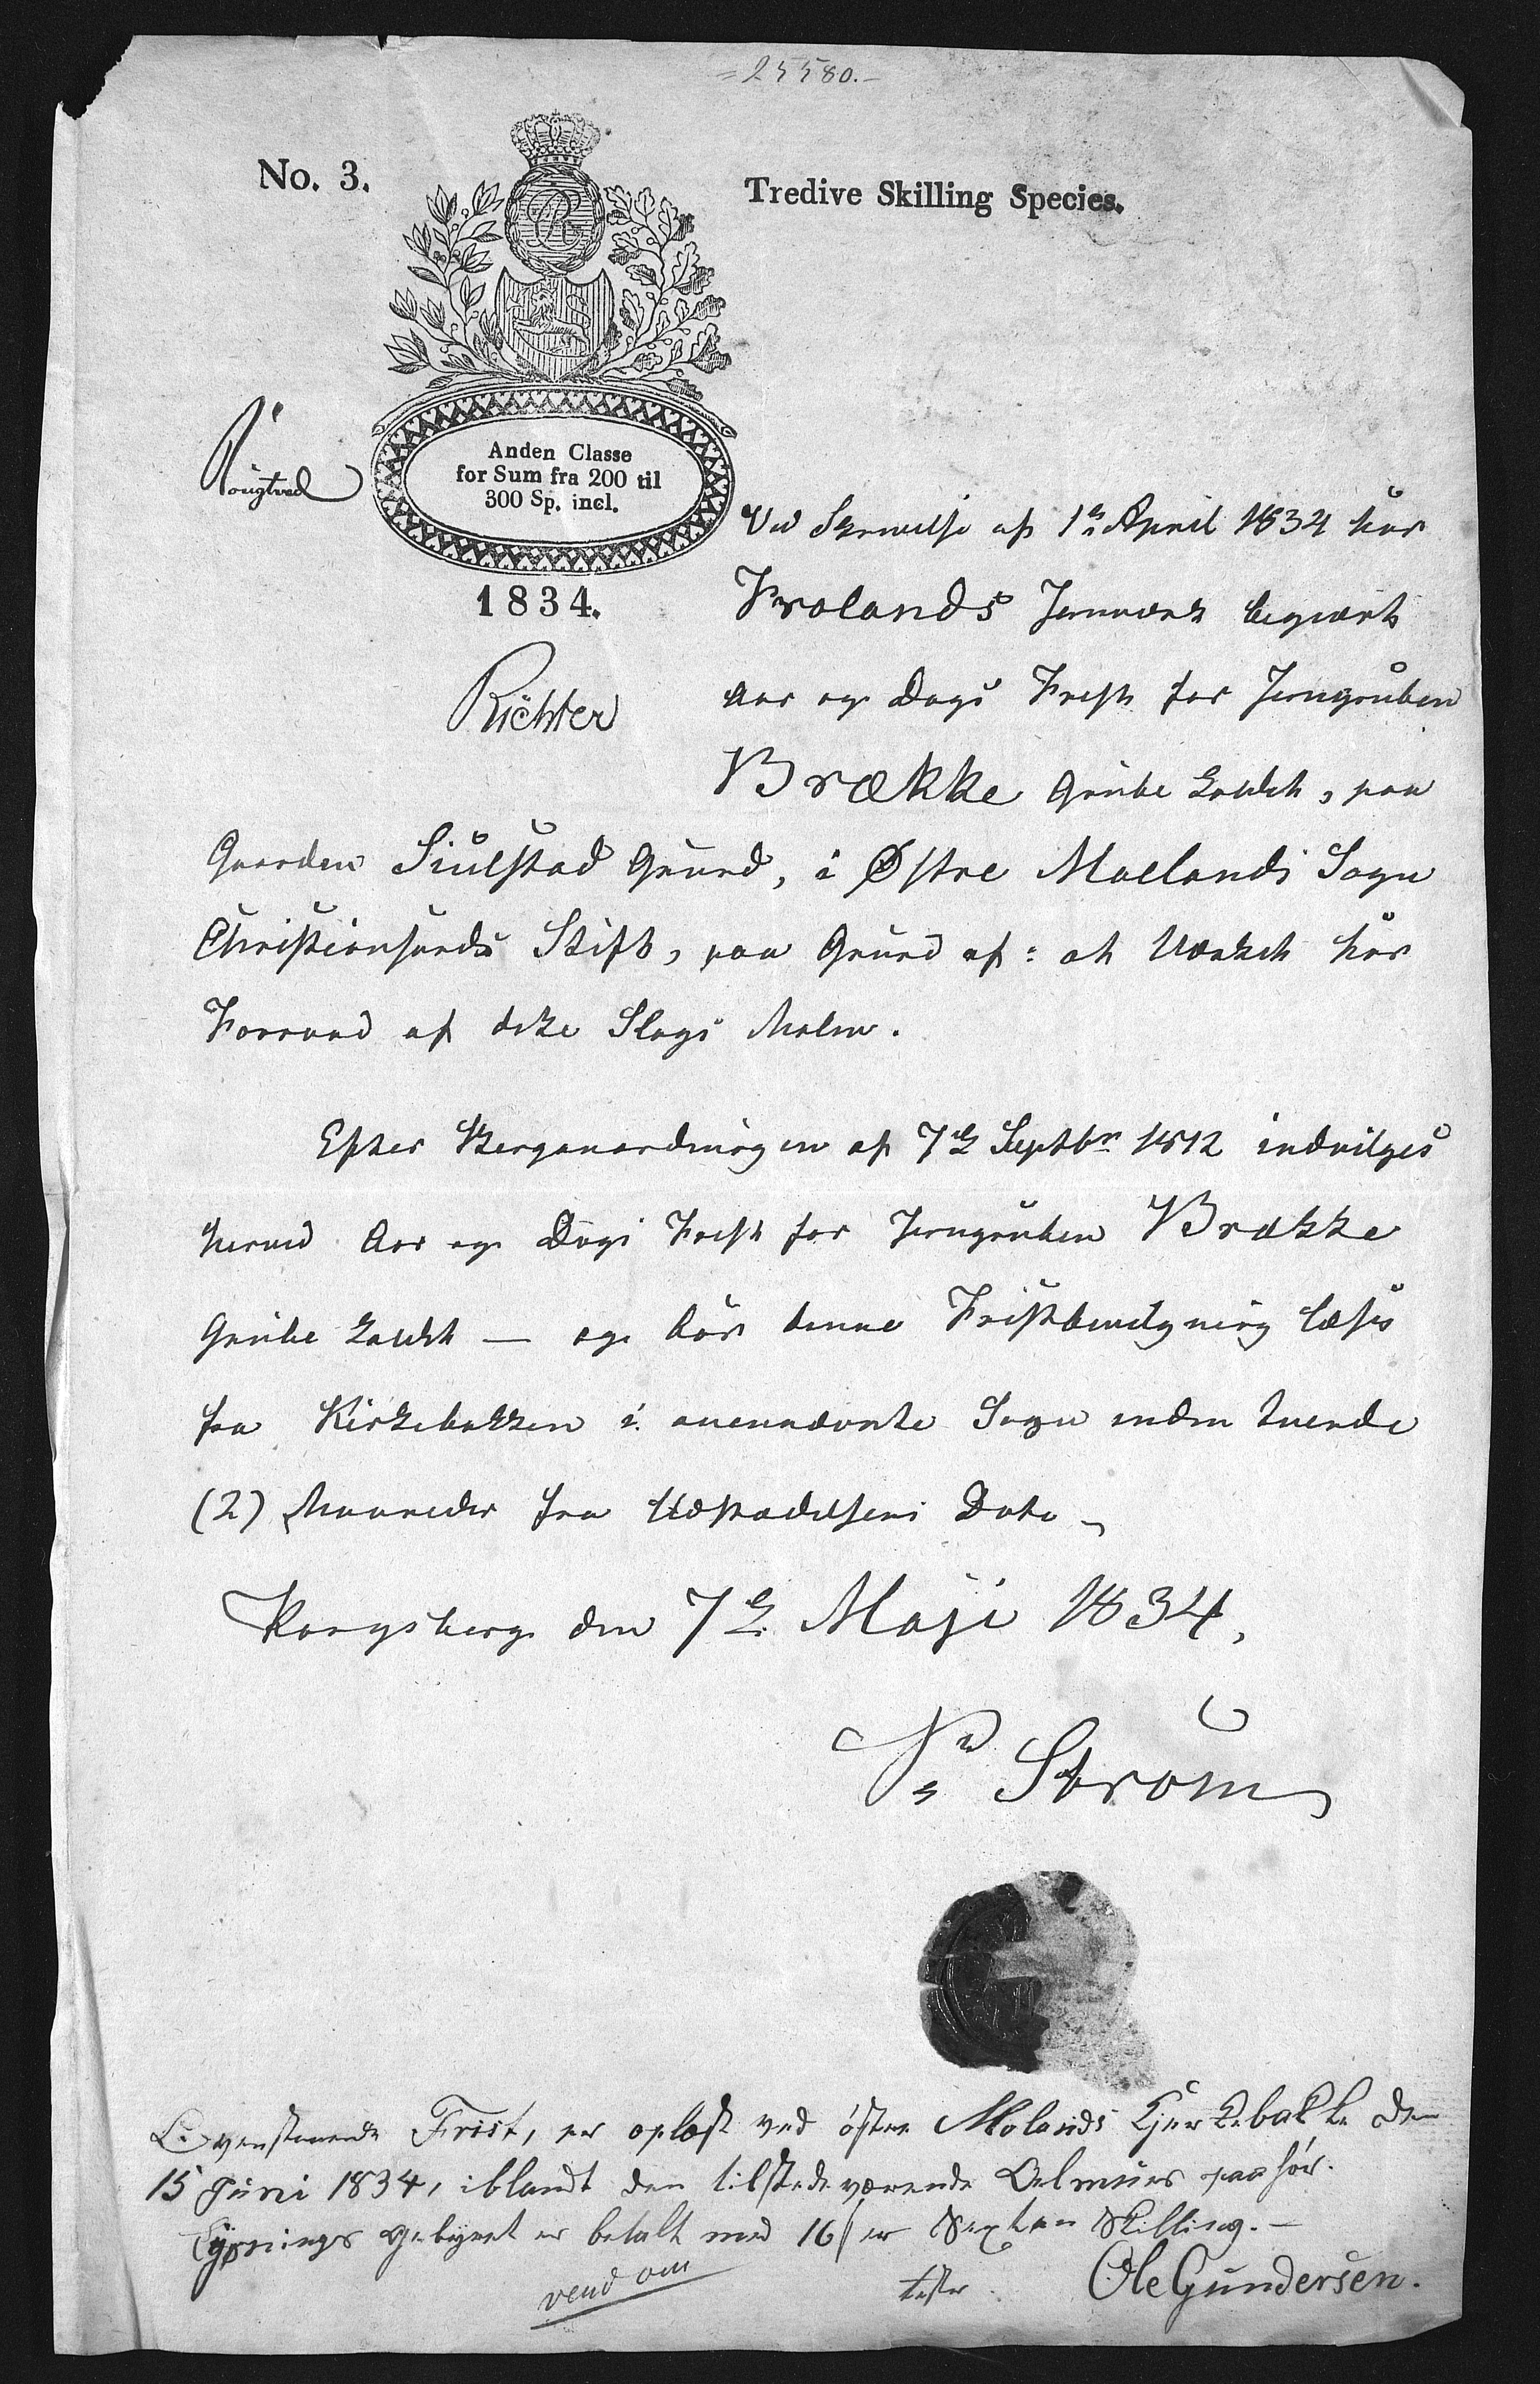 =25580.-
No. 3.
Tredive Skilling Species.
Anden Classe
for Sum fra 200 til
300 Sp. incl.
1834.
Richter
Ved Skrivelse af 1ste April 1834 har
Frolands Jernværk begjært
Aar og Dags Frist for Jerngruben
Brække Grube kaldet, paa
Gaarden Siulstad Grund, i Østre Moelands Sogn
Christiansands Stift, paa Grund af: at Værket har
Forraad af dette Slags Malm.
Efter Berganordningen af 7de Septbr 1812 indvilges
herved Aar og Dags Frist for Jerngruben Brække
Grube kaldet — og bør denne Fristbevilgning læses
fra Kirkebakken i ovennævnte Sogn inden tvende
(2) Maaneder fra Udstædelsens Dato
Kongsberg den 7de Maji 1834.
Strøm
Ovenstaaende Frist, er oplæst ved østre Molands Kjerkebakke den
15 Juni 1834, iblandt den tilstedeværende Almues paahør.
Lysnings gebyret er betalt med 16 ß er Sexten Skilling.-
vend om
tester. Ole Gundersen.